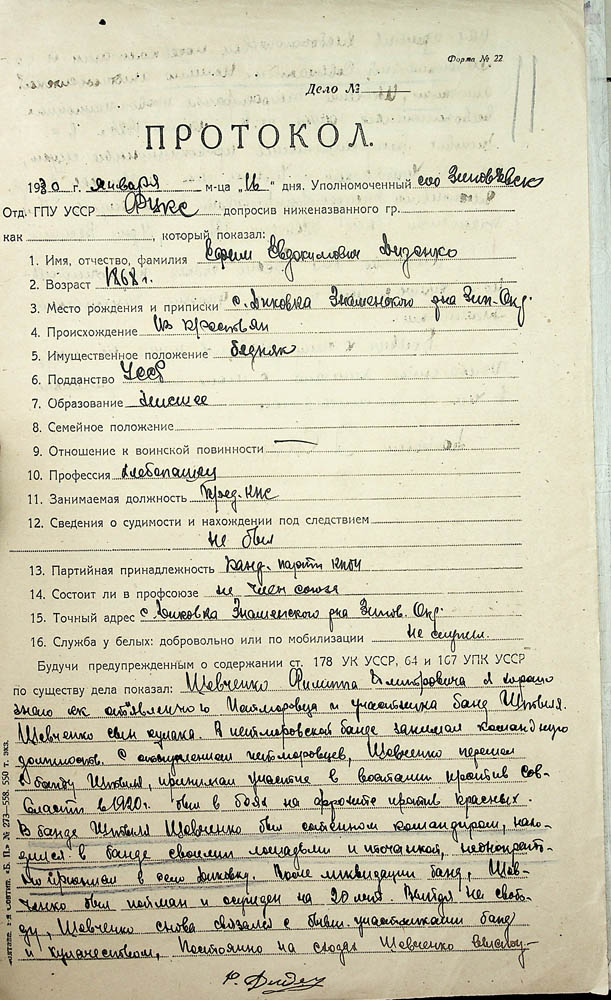 Форма № 22
Дело №
ПРОТОКОЛ.
1930 г. января м-ца „16" дня. Уполномоченный
Отд. ГПУ УССР Фукс допросивниженазванного гр.
как , который показал:
1. Имя, отчество, фамилия Ефрем Евдокимович
2. Возраст 1868 г.
3. Место рождения и приписки с. Диковка Знаменского р-на Зин. Окр.
4. Происхождение Из крестьян
5. Имущественное положение бедняк
6. Подданство УССР
7. Образование низшее
8. Семейное положение
9. Отношение к воинской повинности —
10. Профессия хлебопашец
11. Занимаемая должность Пред. КНС
12. Сведения о судимости и нахождении под следствием
не был
13. Партийная принадлежность Канд. партии КПбУ
14. Состоит ли в профсоюзе не член союза
15. Точный адрес с. Диковка Знаменского р-на Зинов. Окр.
16. Служба у белых: добровольно или по мобилизации не служил.
Будучи предупрежденным о содержании ст. 178 УК УССР, 64 и 167 УПК УССР
по существу дела показал: Шевченко Филиппа Дмитровича я хорошо
знаю как отъявленного Петлюровца и участника банд
Шевченко сын кулака. В петлюровской банде занимал командную
должность. С отступлением петлюровцев, Шевченко перешел
в банду , принимал участие в восстании против Сов-
власти в 1920 г. был в боях на фронте против красных.
В банде Шевченко был сотенным командиром, нахо-
дился в банде своими лошадьми и тачанкой, неоднократ-
но приезжал в село Диковку. После ликвидации банд, Шев-
ченко был пойман и осужден на 20 лет. Выйдя на свобо-
ду, Шевченко снова связался с бывш. участниками банд
и кулачеством, Постоянно на сходах Шевченко выступ-